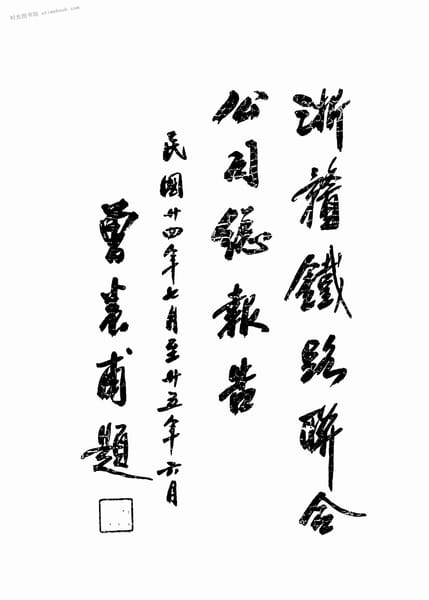 浙贛鐵路聯合
公司總報告
民國廿四年七月至廿五年六月
曾養甫題
时光图书馆 szimebook.com